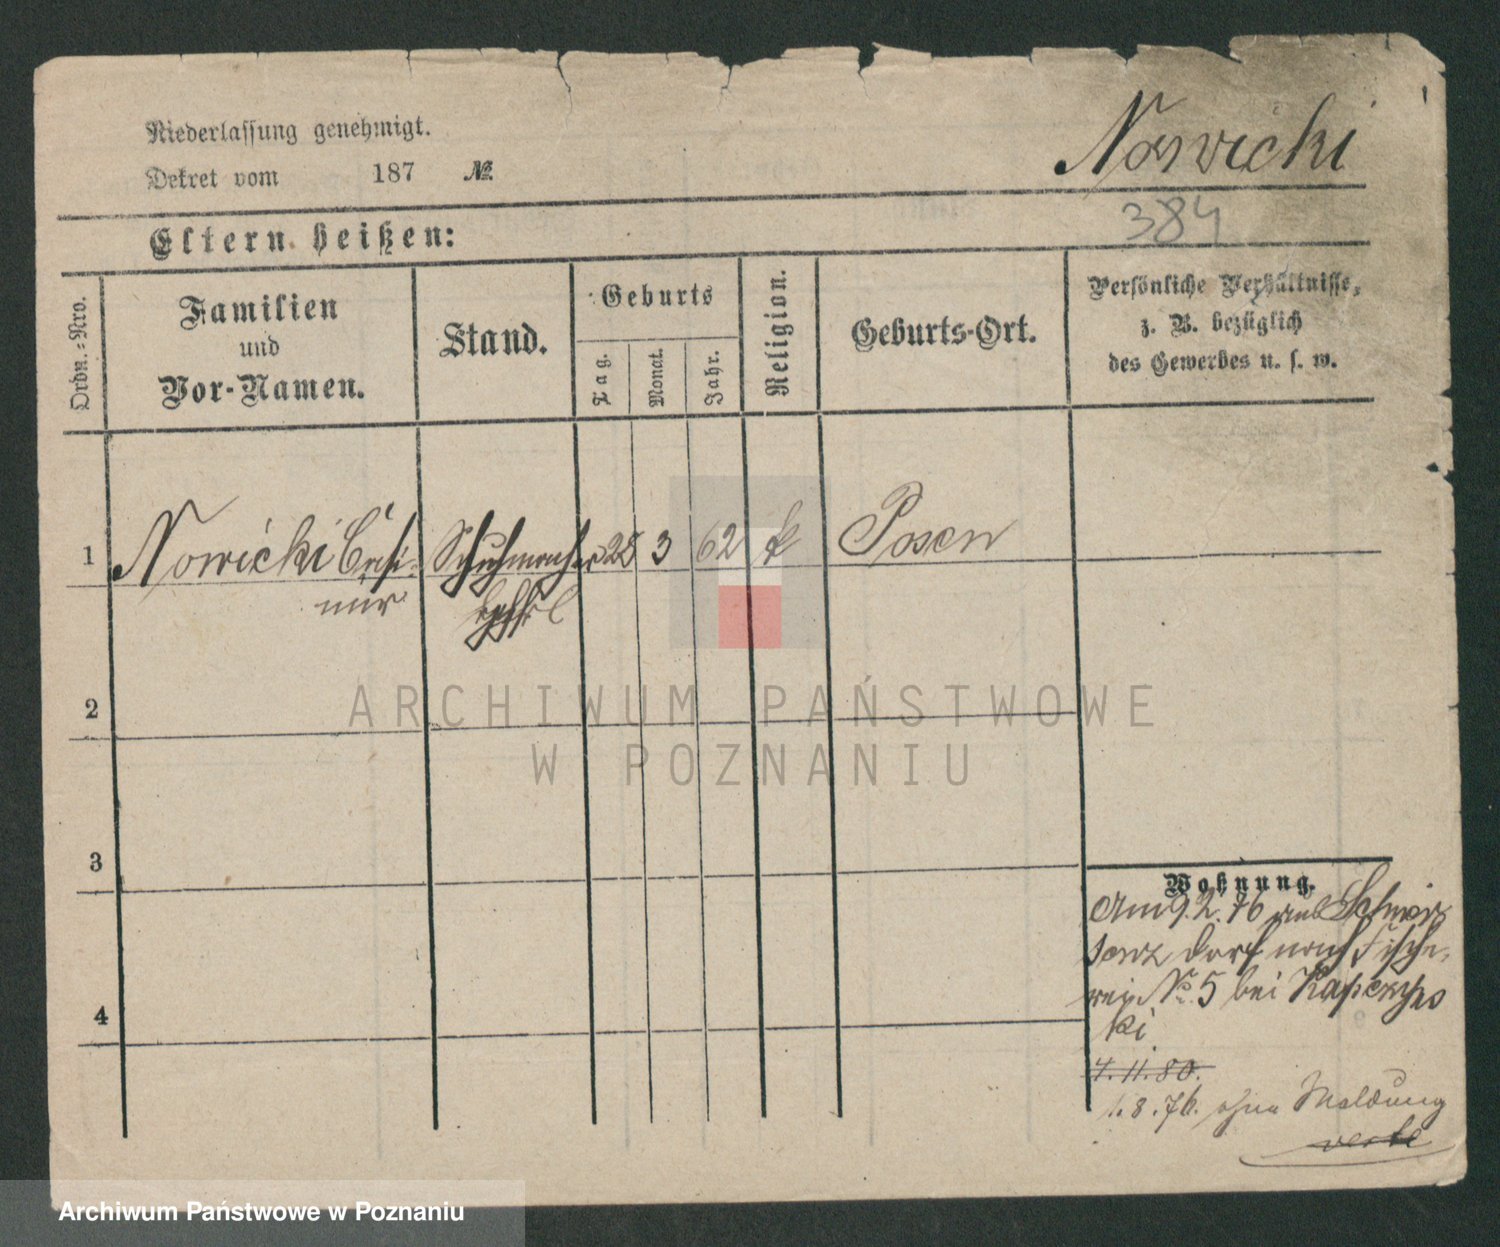 Niederlassung genehmigt.
Dekret vom 187 №
Nowicki
384
Eltern heißen:
Ordn.=Nro.
Familien
und
Vor-Namen.
Stand.
Geburts
Tag.
Monat.
Jahr.
Religion.
Geburts-Ort.
Persönliche Verhältnisse,
z. B. bezüglich
des Gewerbes u. s. w.
1 Nowicki Casi- Schuhmacher 28 3 62 k Posen
mir
2
3
4
Wohnung.
Am 9.2.76 aus
dorf nach Fische-
rei № 5 bei
ki
4.11.80.
1.8.76. ohne Meldung
verte
ARCHIWUM PAŃSTWOWE
W POZNANIU
Archiwum Państwowe w Poznaniu